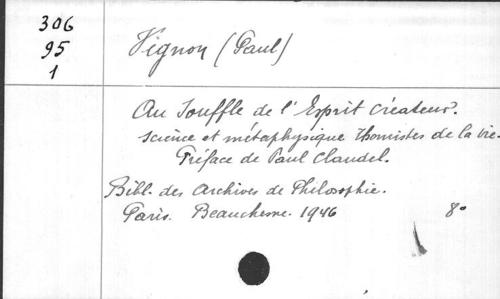 306
95
1
Vignon (Paul)
Au Souffle de l'Esprit Créateur.
Science et métaphysique thomistes de la vie.
Préface de Paul Claudel.
Bibl. des Archives de Philosophie.
Paris. Beauchesne. 1946 8°